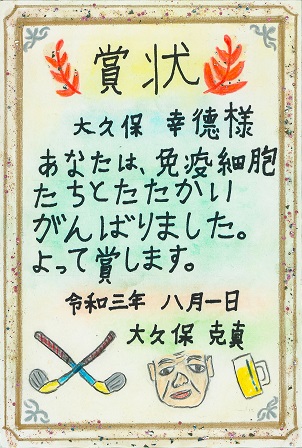 賞状
大久保 幸德様
あなたは、免疫細胞
たちとたたかい
がんばりました。
よって賞します。
令和三年 八月一日
大久保 克真